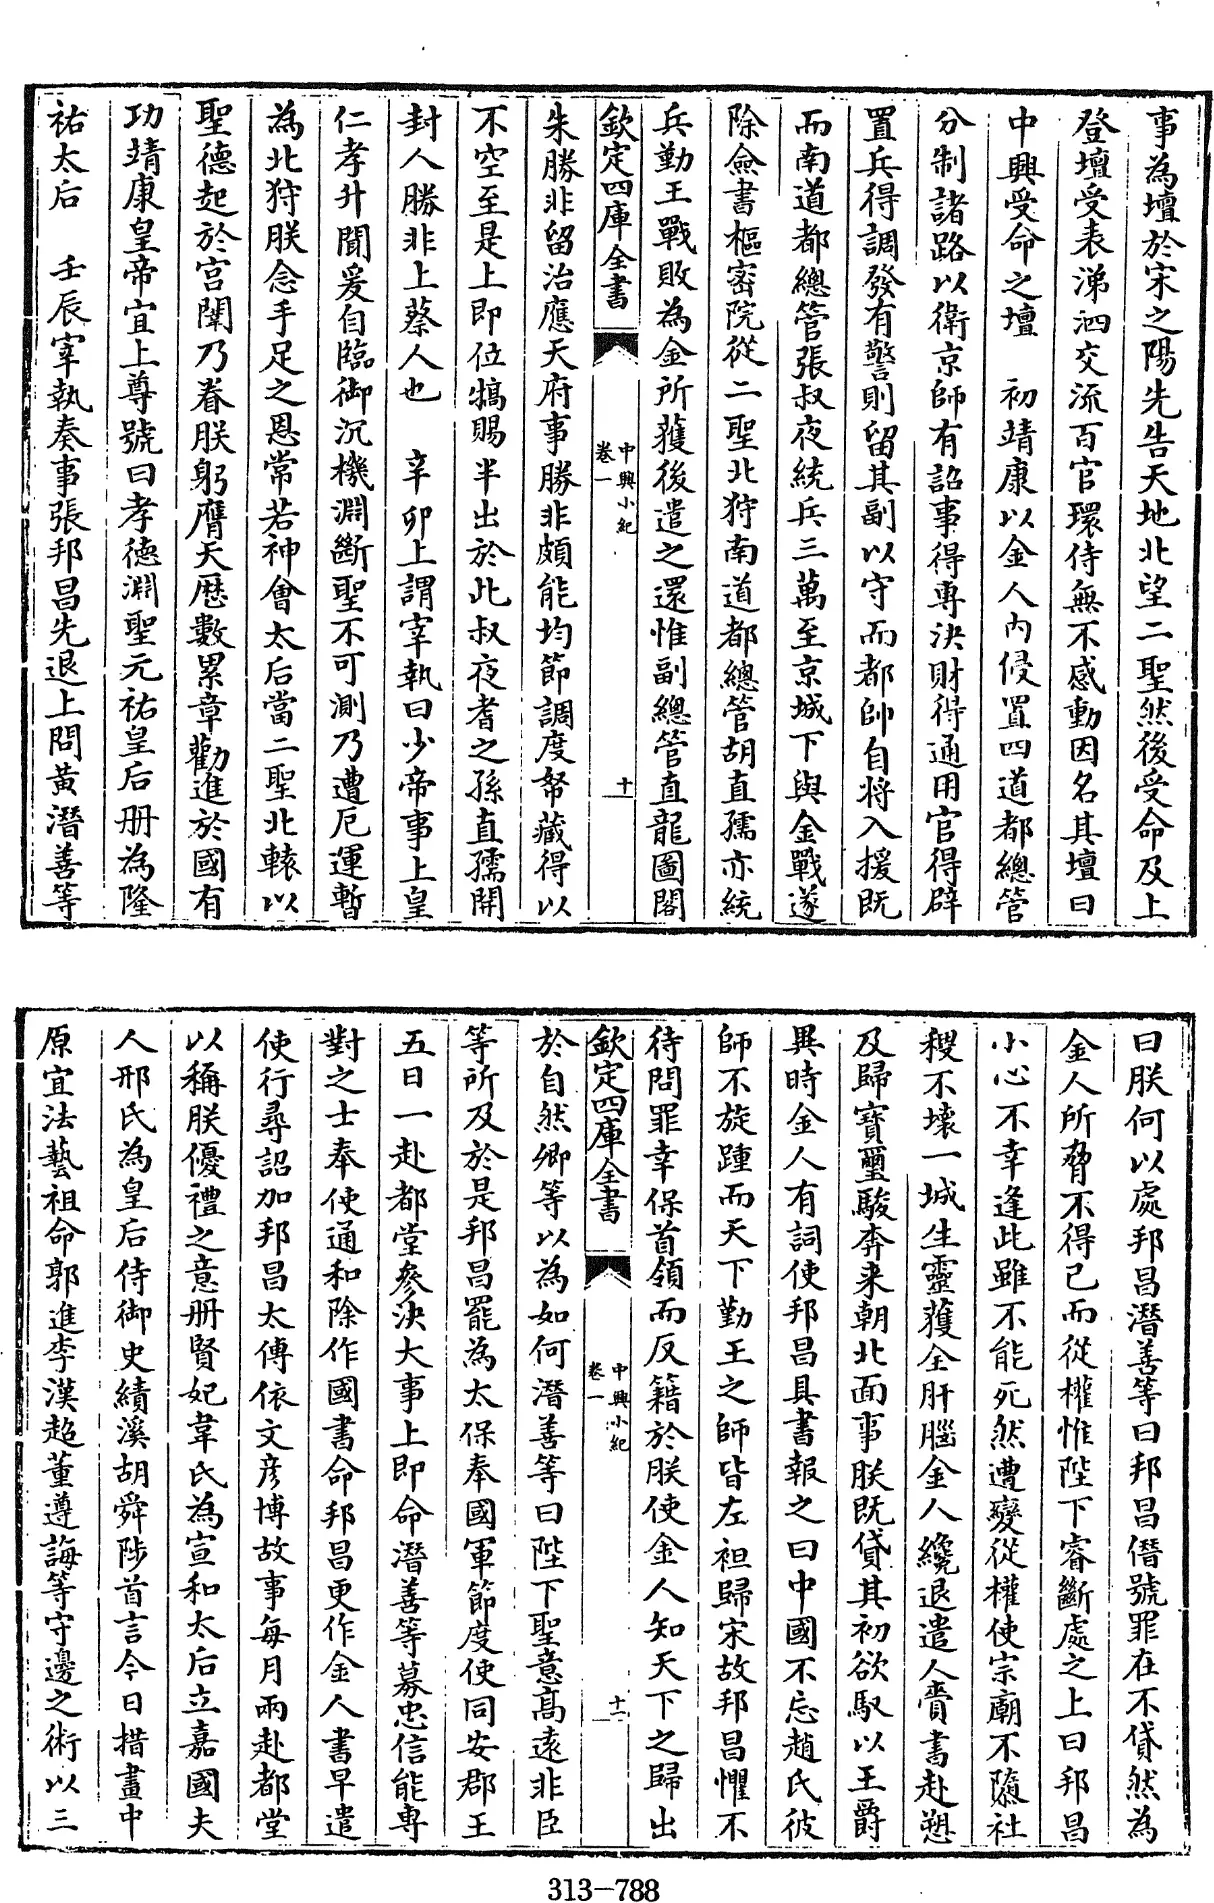 事為壇於宋之陽先告天地北望二聖然後受命及上
登壇受表涕泗交流百官環侍無不感動因名其壇曰
中興受命之壇　初靖康以金人内侵置四道都總管
分制諸路以衛京師有詔事得專決財得通用官得辟
置兵得調發有警則留其副以守而都帥自將入援既
而南道都總管張叔夜統兵三萬至京城下與金戰遂
除僉書樞密院從二聖北狩南道都總管胡直孺亦統
兵勤王戰敗為金所獲後遣之還惟副總管直龍圖閣
欽定四庫全書
中興小紀
卷一
十
朱勝非留治應天府事勝非頗能均節調度帑藏得以
不空至是上即位犒賜半出於此叔夜耆之孫直孺開
封人勝非上蔡人也　辛卯上謂宰執曰少帝事上皇
仁孝升聞爰自臨御沉機淵斷聖不可測乃遭厄運暫
為北狩朕念手足之恩常若神會太后當二聖北轅以
聖德起於宫闈乃眷朕躬膺天厯數累章勸進於國有
功靖康皇帝宜上尊號曰孝德淵聖元祐皇后册為隆
祐太后　壬辰宰執奏事張邦昌先退上問黃潛善等
曰朕何以處邦昌潛善等曰邦昌僭號罪在不貸然為
金人所脅不得已而從權惟陛下睿斷處之上曰邦昌
小心不幸逢此雖不能死然遭變從權使宗廟不隳社
稷不壞一城生靈獲全肝腦金人纔退遣人賫書赴愬
及歸寶璽駿奔来朝北面事朕既貸其初欲馭以王爵
異時金人有詞使邦昌具書報之曰中國不忘趙氏彼
師不旋踵而天下勤王之師皆左袒歸宋故邦昌懼不
待問罪幸保首領而反籍於朕使金人知天下之歸出
欽定四庫全書
中興小紀
卷一
十一
於自然卿等以為如何潛善等曰陛下聖意高遠非臣
等所及於是邦昌罷為太保奉國軍節度使同安郡王
五日一赴都堂參決大事上即命潛善等募忠信能專
對之士奉使通和除作國書命邦昌更作金人書早遣
使行尋詔加邦昌太傅依文彦博故事每月兩赴都堂
以稱朕優禮之意册賢妃韋氏為宣和太后立嘉國夫
人邢氏為皇后侍御史績溪胡舜陟首言今日措畫中
原宜法藝祖命郭進李漢超董遵誨等守邊之術以三
313-788